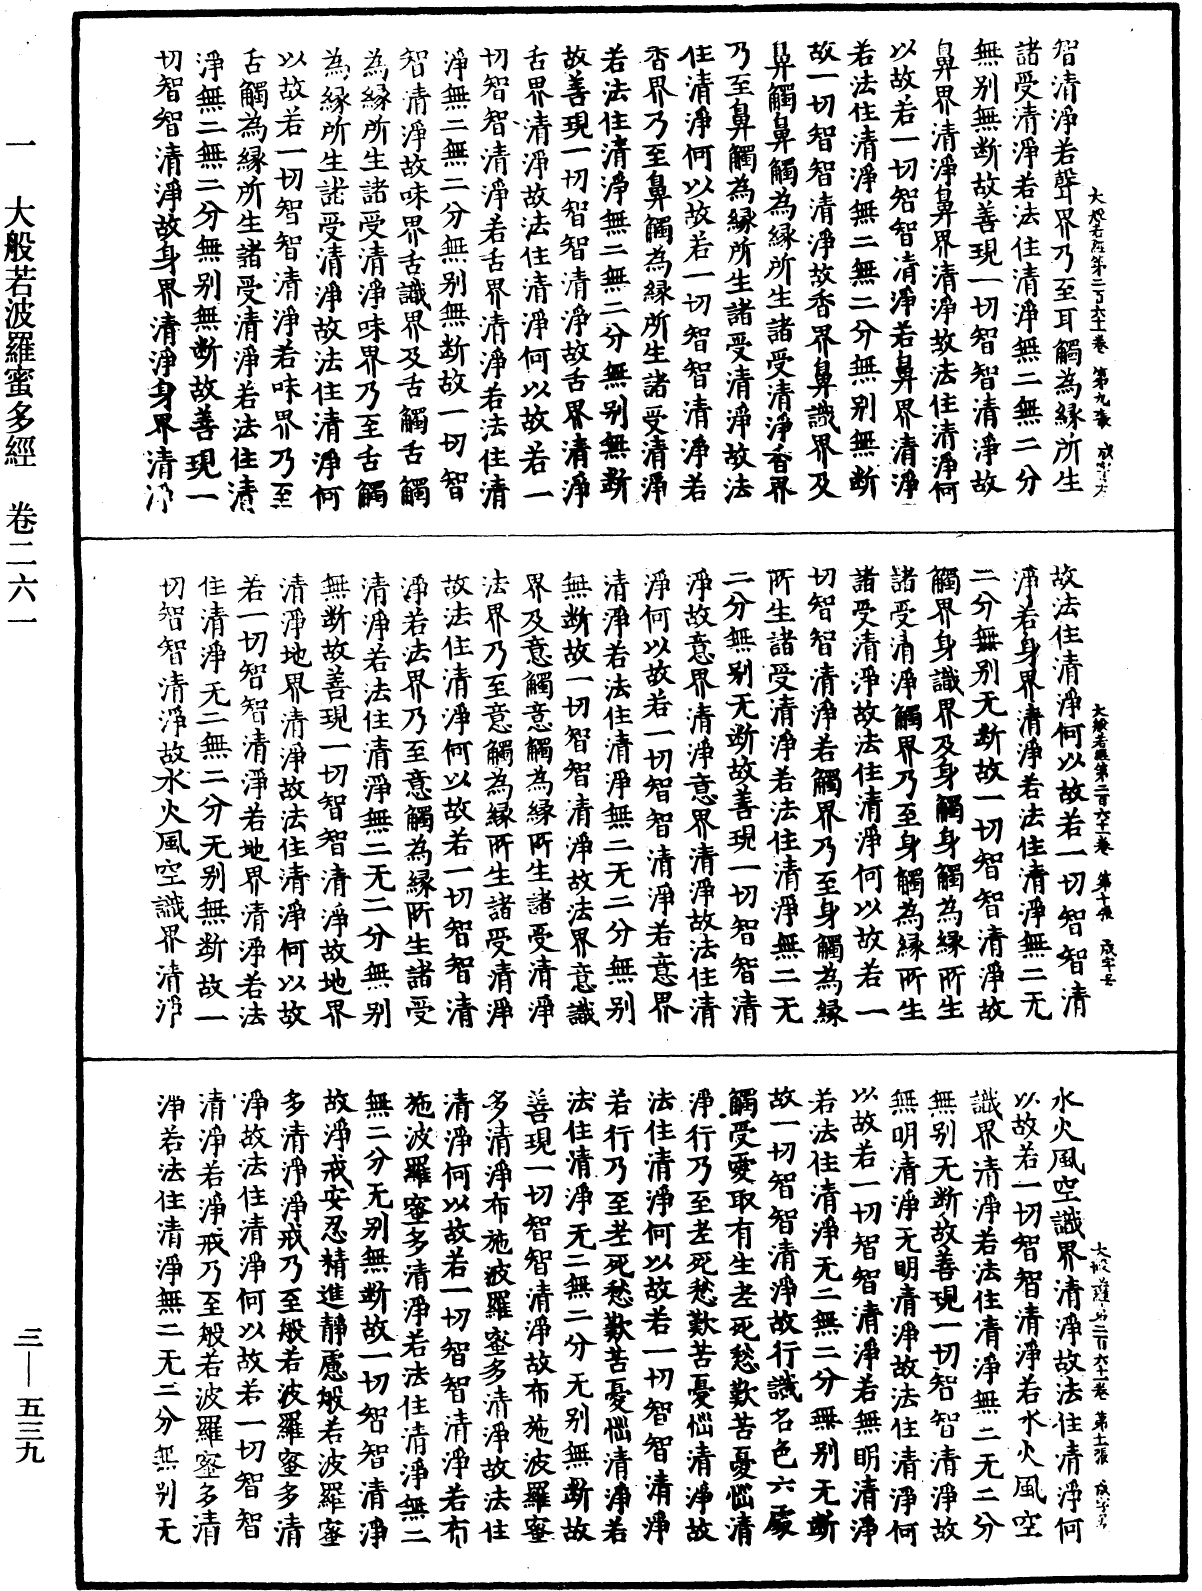 大般若經第二百六十一卷 第九張
智清淨若聲界乃至耳觸為緣所生
諸受清淨若法住清淨無二無二分
無別無斷故善現一切智智清淨故
鼻界清淨鼻界清淨故法住清淨何
以故若一切智智清淨若鼻界清淨
若法住清淨無二無二分無別無斷
故一切智智清淨故香界鼻識界及
鼻觸鼻觸為緣所生諸受清淨香界
乃至鼻觸為緣所生諸受清淨故法
住清淨何以故若一切智智清淨若
香界乃至鼻觸為緣所生諸受清淨
若法住清淨無二無二分無別無斷
故善現一切智智清淨故舌界清淨
舌界清淨故法住清淨何以故若一
切智智清淨若舌界清淨若法住清
淨無二無二分無別無斷故一切智
智清淨故味界舌識界及舌觸舌觸
為緣所生諸受清淨味界乃至舌觸
為緣所生諸受清淨故法住清淨何
以故若一切智智清淨若味界乃至
舌觸為緣所生諸受清淨若法住清
淨無二無二分無別無斷故善現一
切智智清淨故身界清淨身界清淨
大般若經第二百六十一卷 第十張
故法住清淨何以故若一切智智清
淨若身界清淨若法住清淨無二无
二分無別无斷故一切智智清淨故
觸界身識界及身觸身觸為緣所生
諸受清淨觸界乃至身觸為緣所生
諸受清淨故法住清淨何以故若一
切智智清淨若觸界乃至身觸為緣
所生諸受清淨若法住清淨無二无
二分無別无斷故善現一切智智清
淨故意界清淨意界清淨故法住清
淨何以故若一切智智清淨若意界
清淨若法住清淨無二无二分無別
無斷故一切智智清淨故法界意識
界及意觸意觸為緣所生諸受清淨
法界乃至意觸為緣所生諸受清淨
故法住清淨何以故若一切智智清
淨若法界乃至意觸為緣所生諸受
清淨若法住清淨無二无二分無別
無斷故善現一切智智清淨故地界
清淨地界清淨故法住清淨何以故
若一切智智清淨若地界清淨若法
住清淨无二無二分无別無斷故一
切智智清淨故水火風空識界清淨
大般若經第二百六十一卷 第十一張
水火風空識界清淨故法住清淨何
以故若一切智智清淨若水火風空
識界清淨若法住清淨無二无二分
無別无斷故善現一切智智清淨故
無明清淨无明清淨故法住清淨何
以故若一切智智清淨若無明清淨
若法住清淨无二無二分無別无斷
故一切智智清淨故行識名色六處
觸受愛取有生老死愁歎苦憂惱清
淨行乃至老死愁歎苦憂惱清淨故
法住清淨何以故若一切智智清淨
若行乃至老死愁歎苦憂惱清淨若
法住清淨无二無二分无別無斷故
善現一切智智清淨故布施波羅蜜
多清淨布施波羅蜜多清淨故法住
清淨何以故若一切智智清淨若布
施波羅蜜多清淨若法住清淨無二
無二分无別無斷故一切智智清淨
故淨戒安忍精進靜慮般若波羅蜜
多清淨淨戒乃至般若波羅蜜多清
淨故法住清淨何以故若一切智智
清淨若淨戒乃至般若波羅蜜多清
淨若法住清淨無二无二分無別无
一 大般若波羅蜜多經 卷二六一
三—五三九